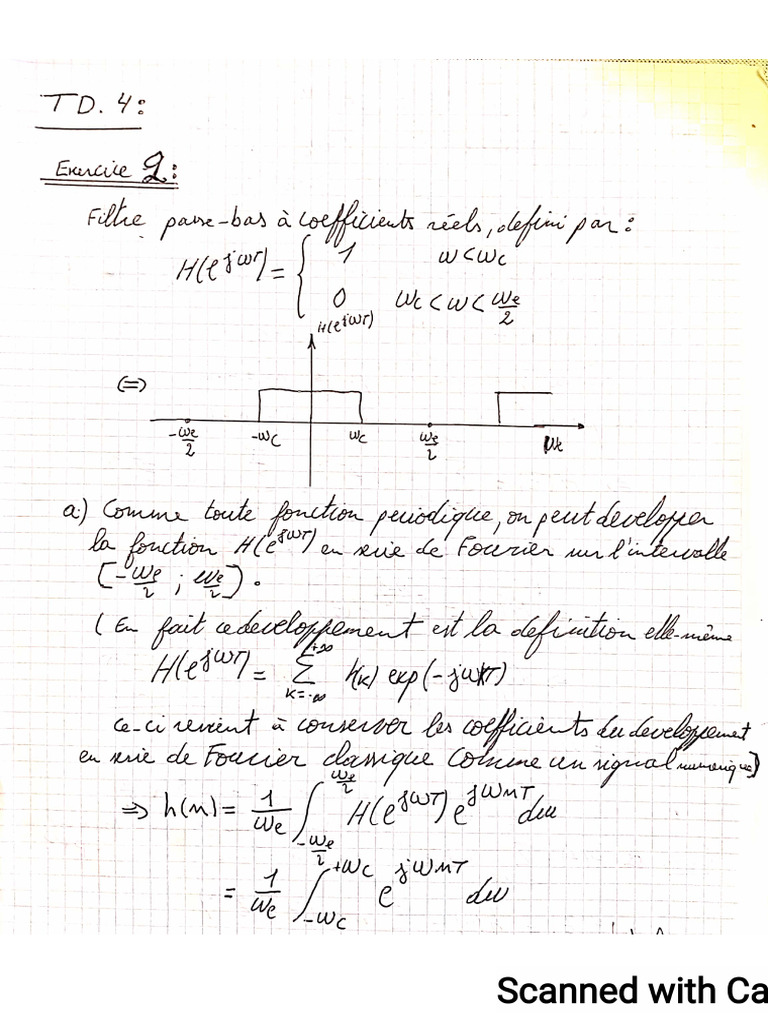 TD. 4:
Exercice 2:
Filtre passe-bas à coefficients réels, defini par:
H(e^{jωT}) = { 1    ω<ωc
0    ωc<ω<ωe/2
H(e^{jωT})
(=)
-ωe/2    -ωc    ωc    ωe/2
a) Comme toute fonction periodique, on peut developper
la fonction H(e^{jωT}) en serie de Fourier sur l'intervalle
[-ωe/2 ; ωe/2).
( En fait ce developpement est la definition elle-même
H(e^{jωT}) = Σ_{K=-∞}^{+∞} h(K) exp(-jωKT)
ce-ci revient à conserver les coefficients du developpement
en serie de Fourier classique comme un signal numerique)
⇒ h(n) = 1/ωe ∫_{-ωe/2}^{ωe/2} H(e^{jωT}) e^{jωnT} dω
= 1/ωe ∫_{-ωc}^{+ωc} e^{jωnT} dω
Scanned with Ca